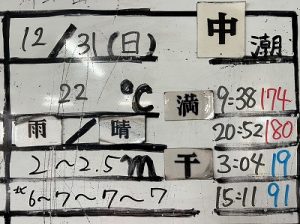 12/31(日) 中潮
22 ℃ 満 9:38 174
雨/晴 20:52 180
2～2.5m 干 3:04 19
北 6～7～7～7 15:11 91